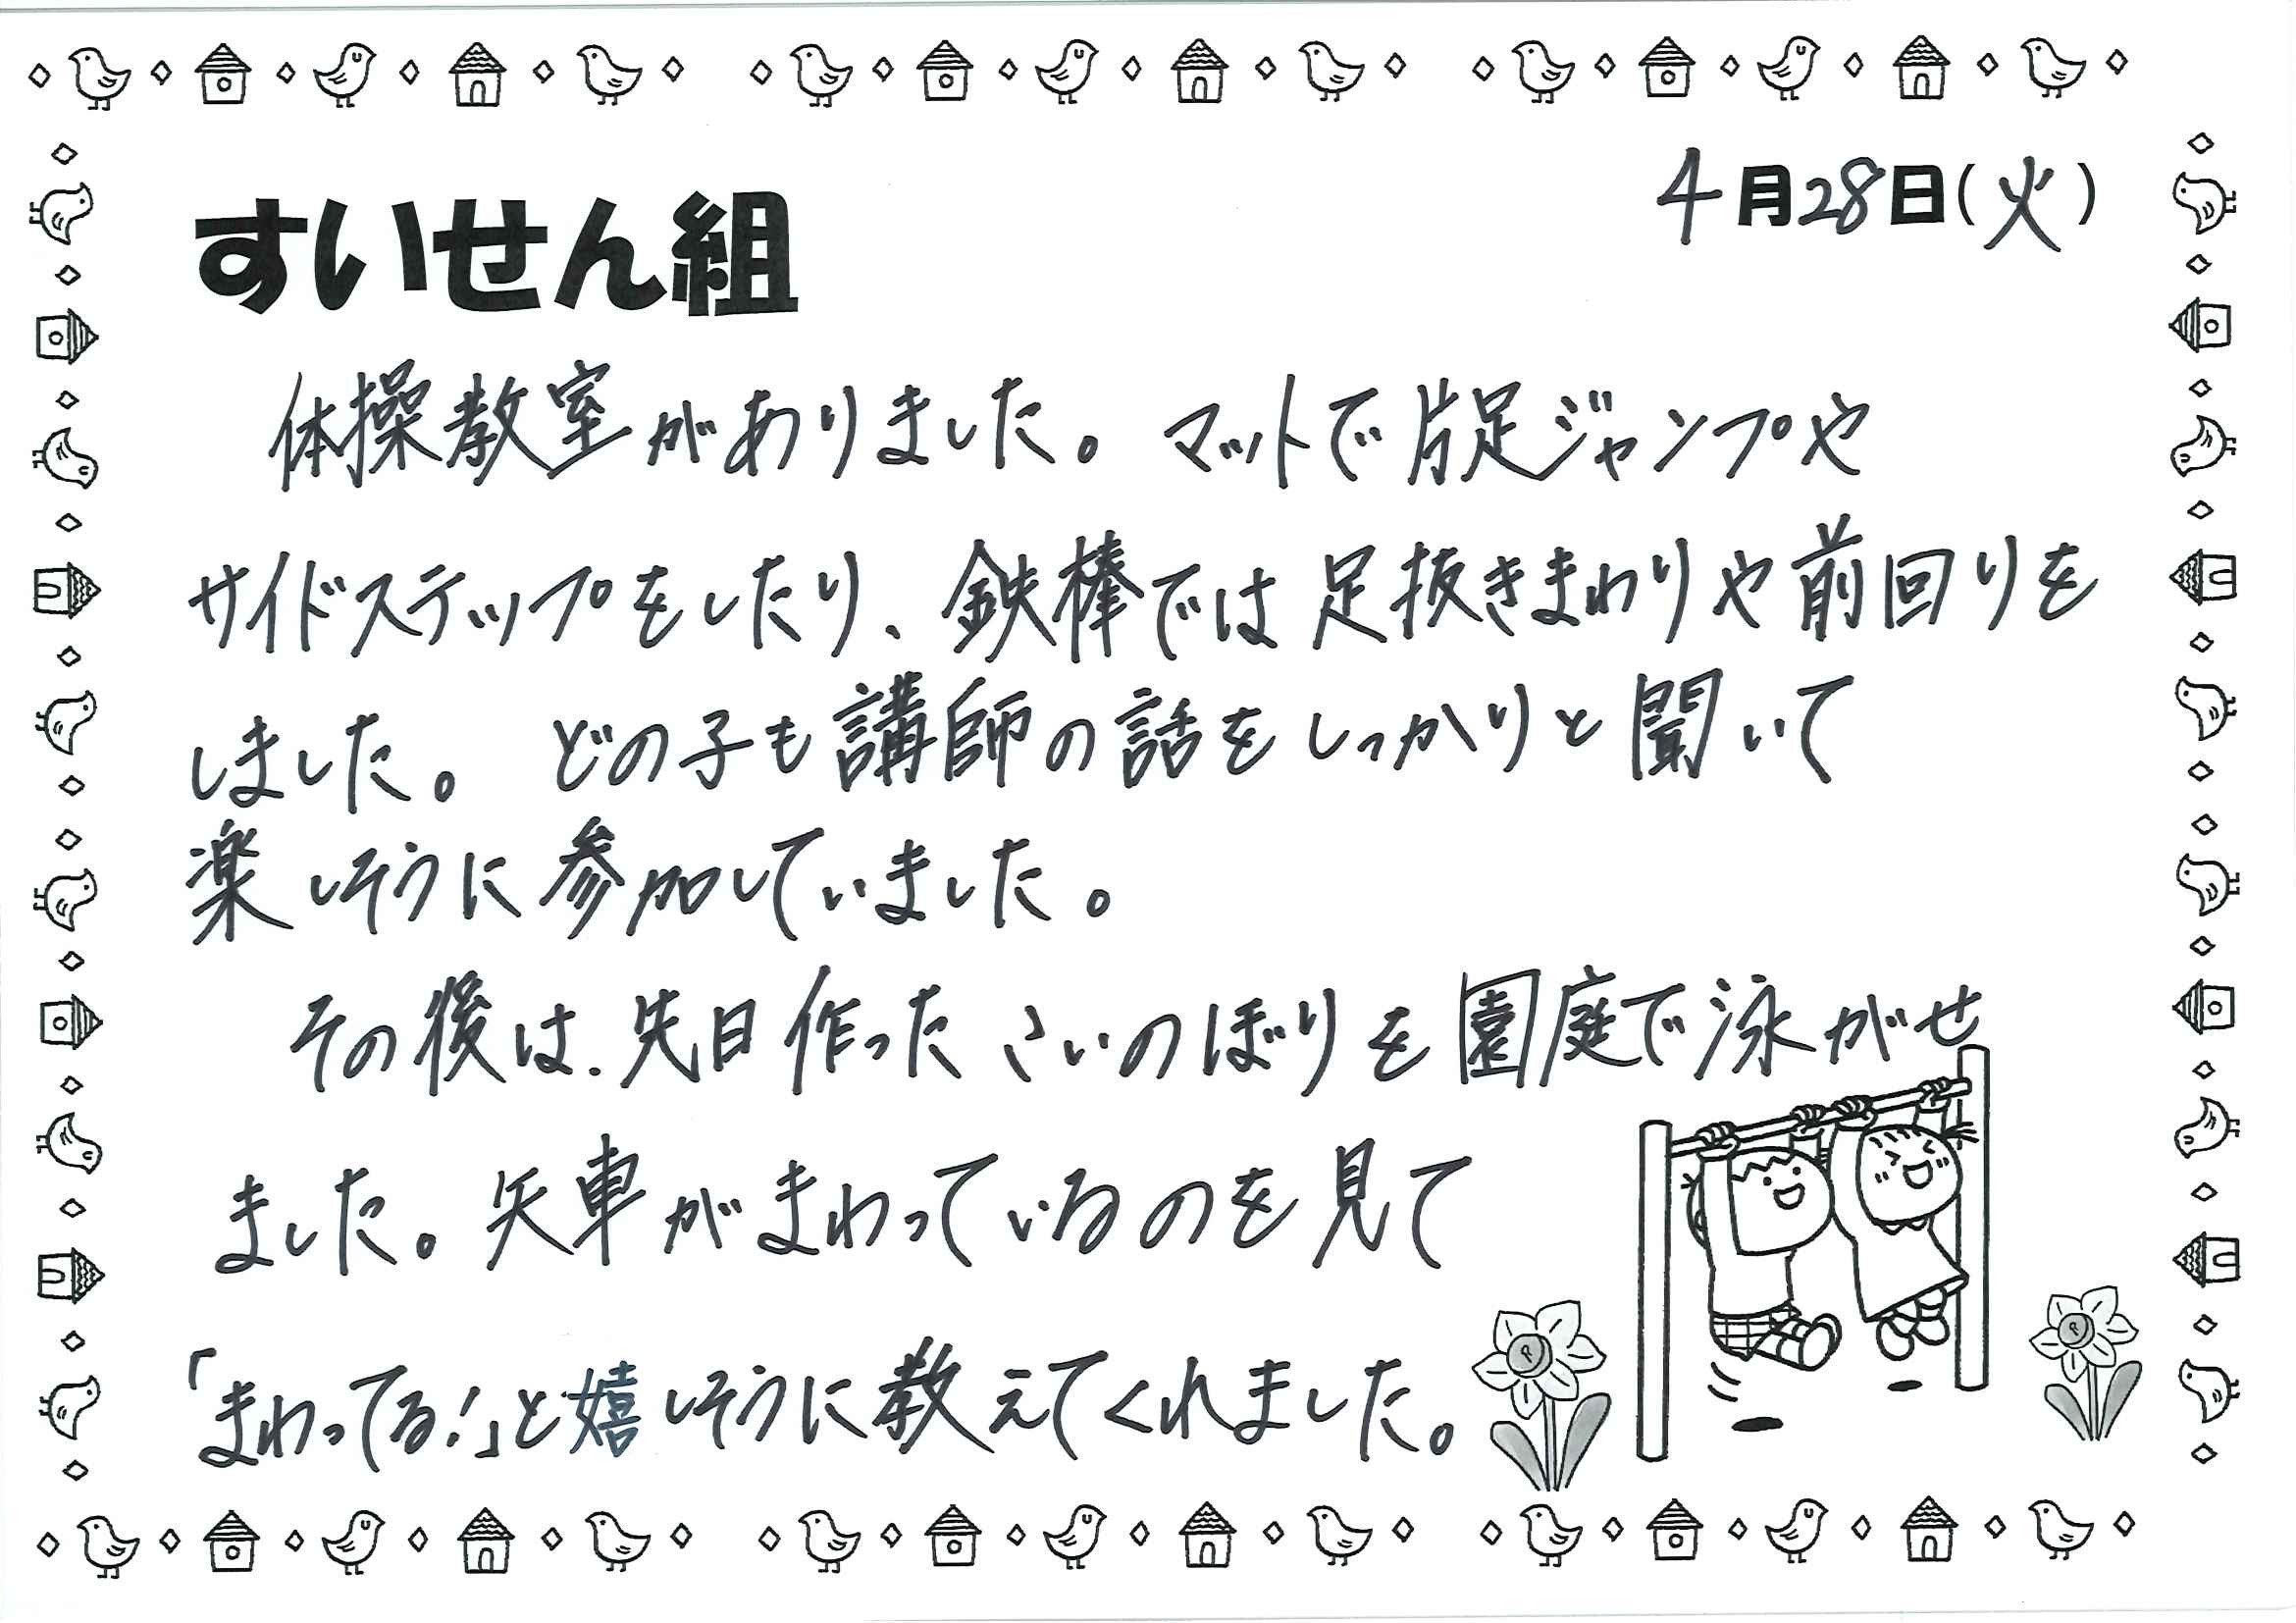 4月28日(火)
すいせん組
体操教室がありました。マットで片足ジャンプや
サイドステップをしたり、鉄棒では足抜きまわりや前回りを
しました。どの子も講師の話をしっかりと聞いて
楽しそうに参加していました。
その後は、先日作ったこいのぼりを園庭で泳がせ
ました。矢車がまわっているのを見て
「まわってる!」と嬉しそうに教えてくれました。